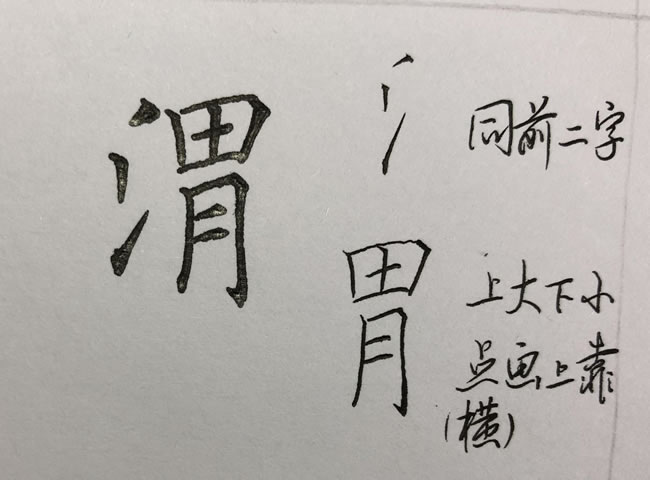 渭
氵
同前二字
胃
上大下小
点画上靠
(横)